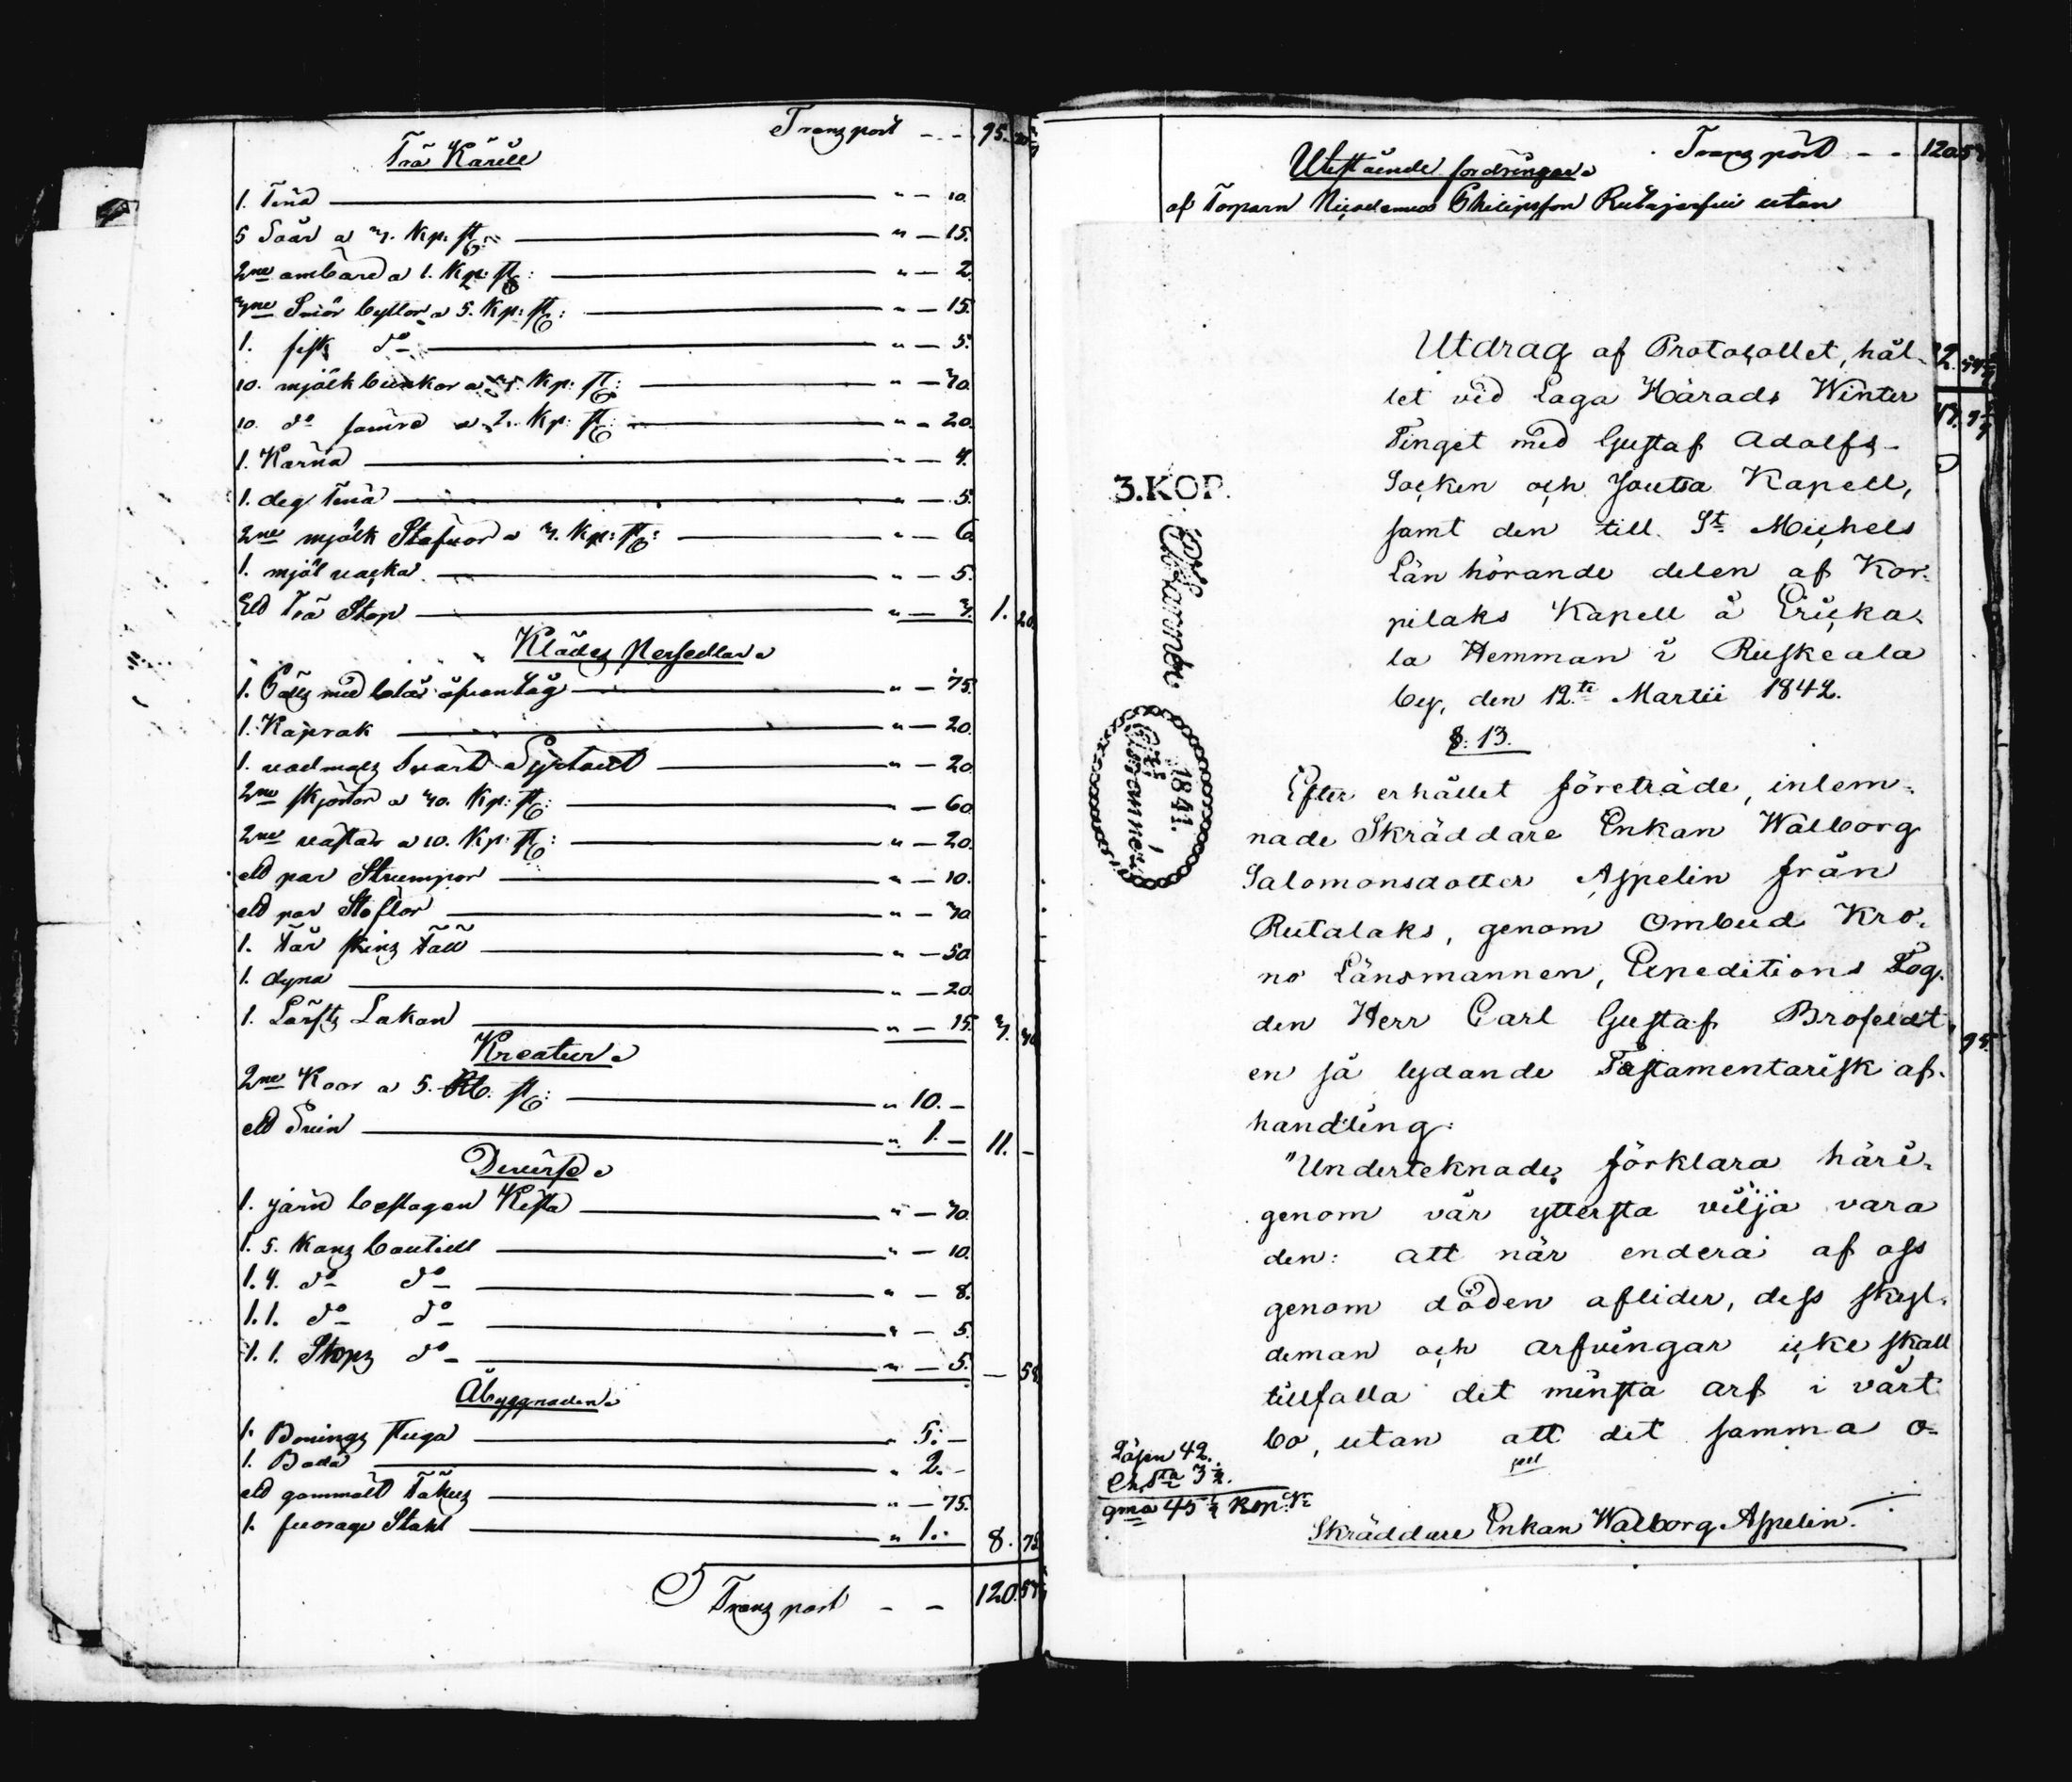 Transport - - 95.
Trä Käril
1. Tina " - 10.
5 Såår a 3. Kp: st: " - 15.
2ne ambäre a 1. Kp: st: " - 2.
3ne Smör byttor a 5. Kp: st: " - 15.
1. fisk do " - 5.
10. mjölk bunkor a 3. Kp: st: " - 30.
10. do sämre a 2. Kp: st: " - 20.
1. Kärna " - 4.
1. deg Tina " - 5.
2ne mjölk Stäfvor a 3. Kp: st: " - 6.
1. mjöl vacka " - 5.
Ett Trä Stop " - 3. 1. 20.
Klädes Persedlar
1. Päls med blå öfvantåg " - 75.
1. Kaprak " - 20.
1. vadmals Svart Syrtout " - 20.
2ne skjortor a 30. Kp: st: " - 60.
2ne västar a 10. Kp: st: " - 20.
ett par Strumpor " - 10.
ett par Stöflor " - 30.
1. Får skins Fäll " - 50.
1. dyna " - 20.
1. Lärfts Lakan " - 15. 3.
Kreatur
2ne Koor a 5. Rb. st: " 10. -
ett Svin " 1. - 11. -
Diverse
1. järn beslagen Kista " - 30.
1. 5. Kans boutiell " - 10.
1. 4. do do " - 8.
1. 1. do do " - 5.
1. 1. Stops do " - 5. - 58.
Åbyggnaden
1. Bonings stuga " 5. -
1. Bod " 2. -
ett gammalt Fähus " - 75.
1. fourage Stall " 1. - 8. 75.
Transport - - 120.
Utestående fordringar Transport - - 120.
af Torparn Nicodemus Philipsson Rutajerfvi utan
Utdrag af Protocollet, hål-
let vid Laga Härads Winter
Tinget med Gustaf Adolfs
Socken och Joutsa Kapell,
samt den till St Michels
Län hörande delen af Kor-
pilaks Kapell å Ericka-
la Hemman i Ruskeala
by, den 12te Martii 1842.
§. 13.
Efter erhållet företräde, inlem-
nade Skräddare Enkan Walborg
Salomonsdotter Aspelin från
Rutalaks, genom Ombud Kro-
no Länsmannen, Expeditions Fog-
den Herr Carl Gustaf Brofeldt,
en så lydande Testamentarisk af-
handling:
"Undertecknade förklara häri-
genom vår yttersta vilja vara
den: att när endera af oss
genom döden aflider, dess skyl-
deman och arfvingar icke skall
tillfalla det minsta arf i vårt
bo, utan att det samma o-
3.KOP.
1841.
Lösen 42.
Ch. Sta 3 1/2.
Sma 45 1/2 Kop. Sr
Skräddare Enkan Walborg Aspelin.